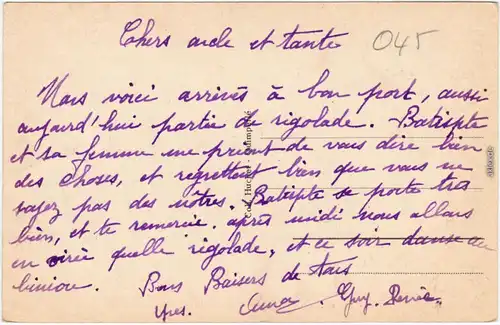 Chers oncle et tante 045
Nous voici arrivés à bon port, aussi
aujourd'hui partie de rigolade. Batispte
et sa femme me prient de vous dire bien
des choses, et regrettent bien que vous ne
soyez pas des nôtres. Batispte se porte très
bien, et te remercie. après midi nous allons
en virée quelle rigolade, et ce soir danse au
biniou. Bons Baisers de tous
Yves. Guy. Renée.